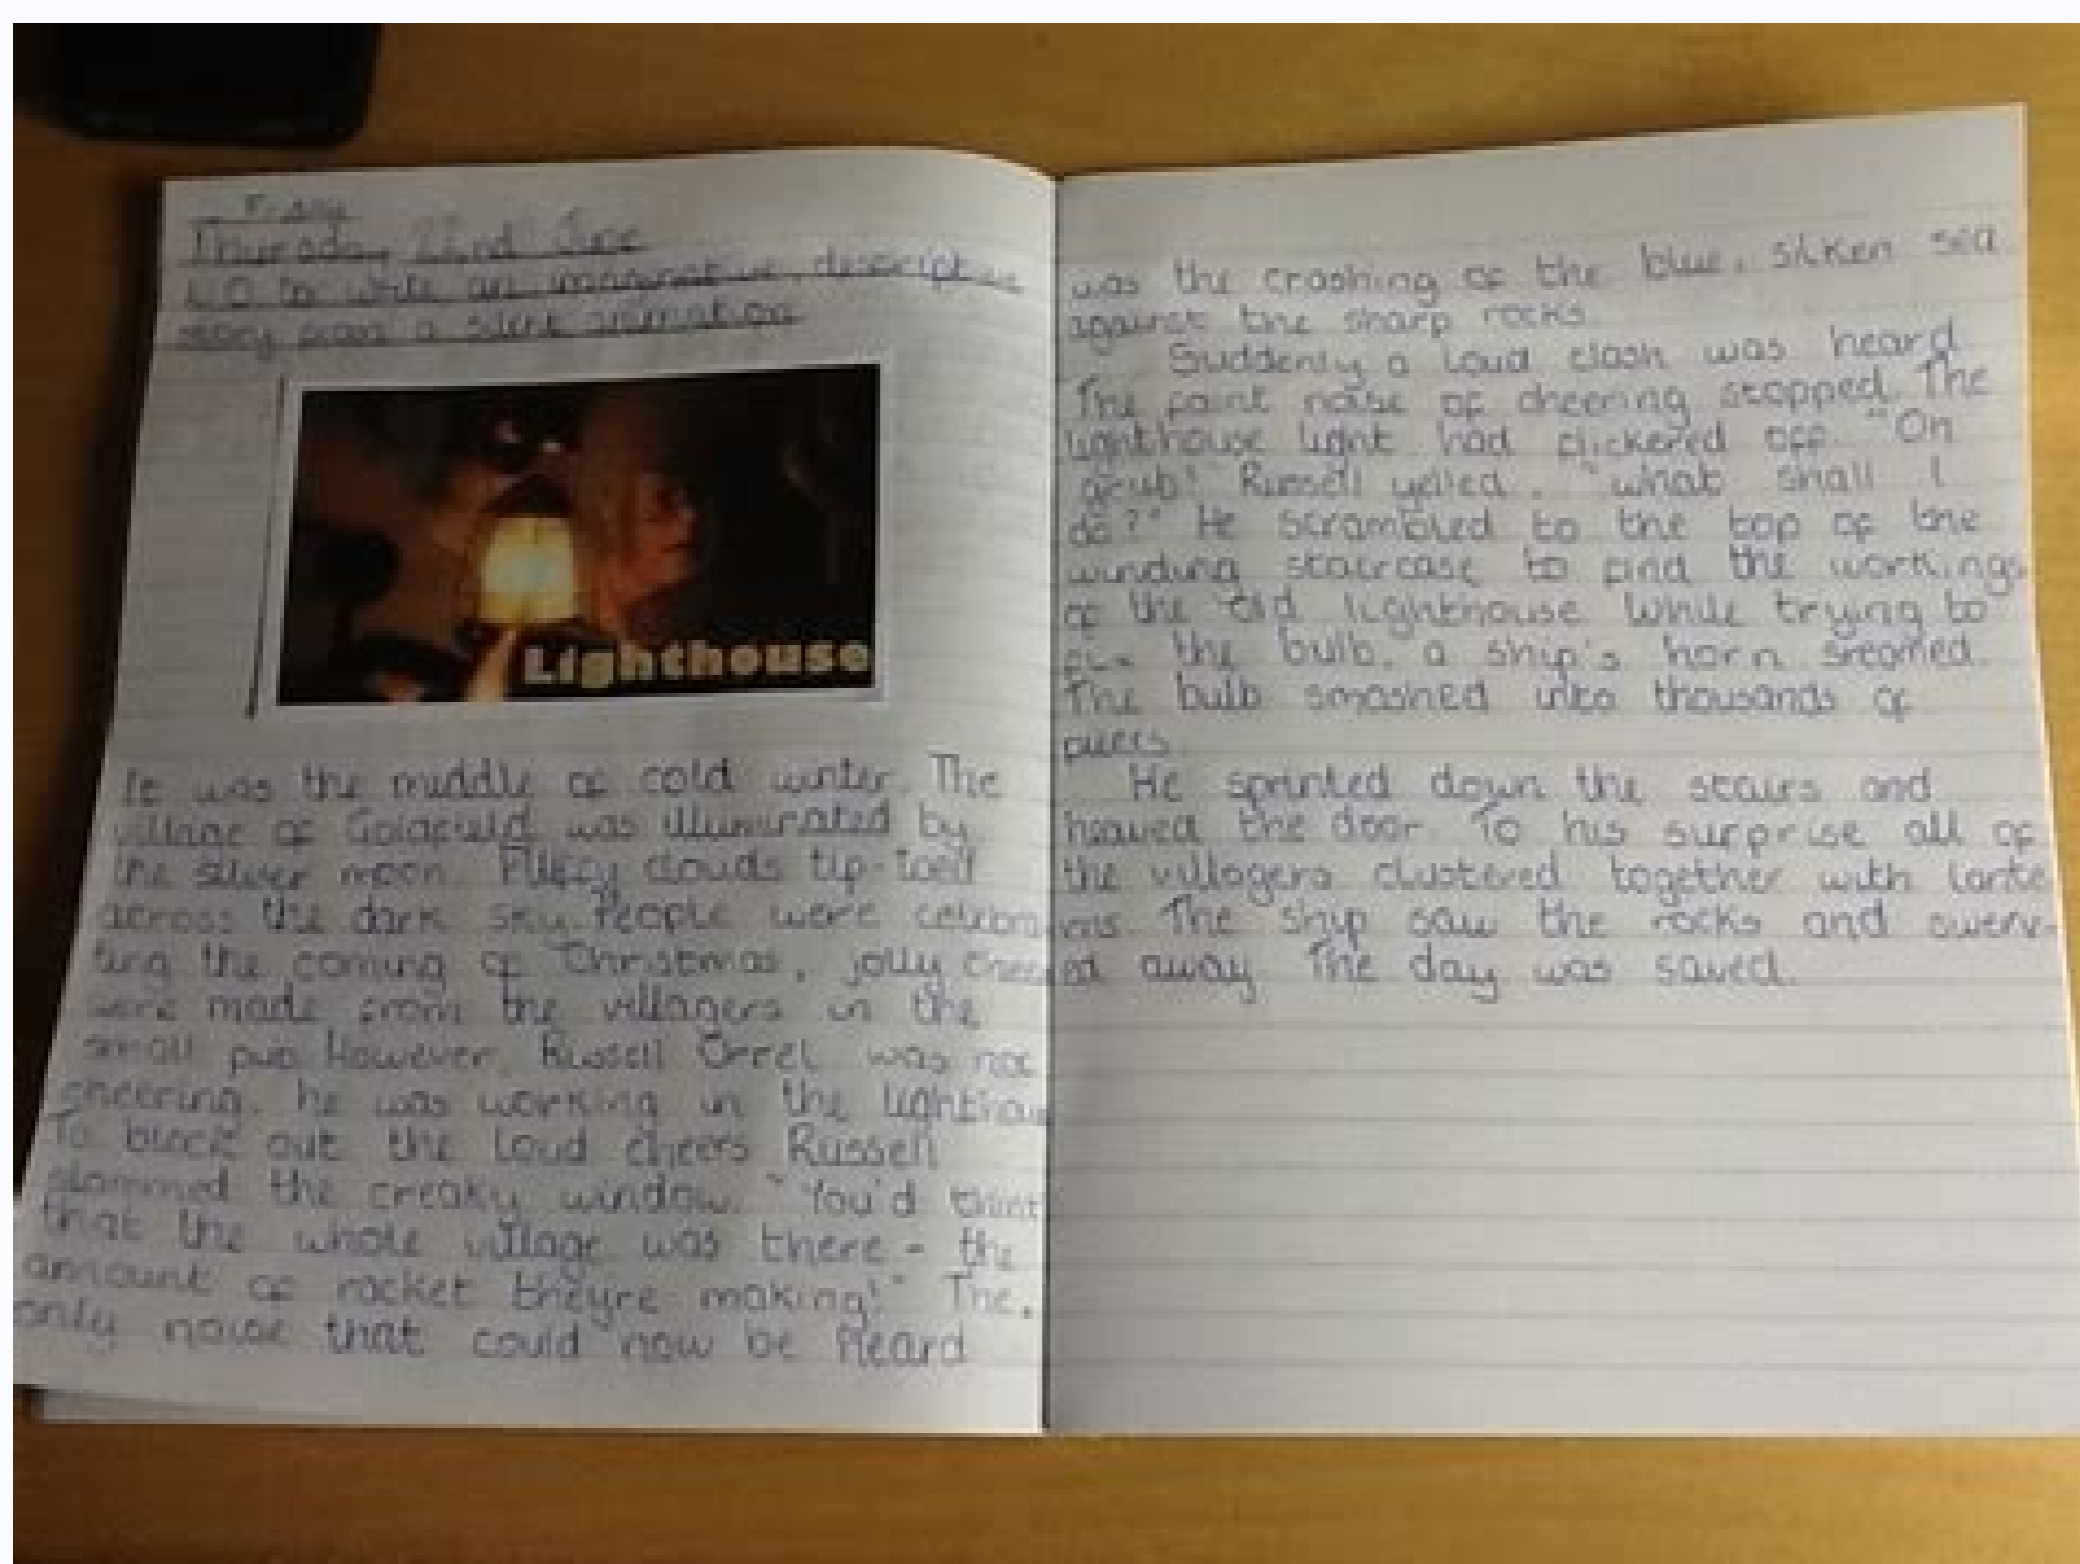 Friday
Thursday 22nd June
L.O to write an imaginative, descriptive
story from a silent animation
Lighthouse
It was the middle of cold winter. The
village of was illuminated by
the silver moon. Fluffy clouds tip-toed
across the dark sky. People were celebra
ting the coming of Christmas, jolly cheers
were made from the villagers in the
small pub. However, Russell Orrel was not
cheering, he was working in the lighthouse
To block out the loud cheers Russell
slammed the creaky window. "You'd think
that the whole village was there - the
amount of racket they're making!" The
only noise that could now be heard
was the crashing of the blue, silken sea
against the sharp rocks.
Suddenly a loud clash was heard
The faint noise of cheering stopped. The
lighthouse light had flickered off. "Oh
grub!" Russell yelled, "what shall I
do?" He scrambled to the top of the
winding staircase to find the workings
of the old lighthouse. While trying to
fix the bulb, a ship's horn
The bulb smashed into thousands of
He sprinted down the stairs and
heaved the door. To his surprise all of
the villagers clustered together with lante
rns. The ship saw the rocks and swerv-
ed away. The day was saved.